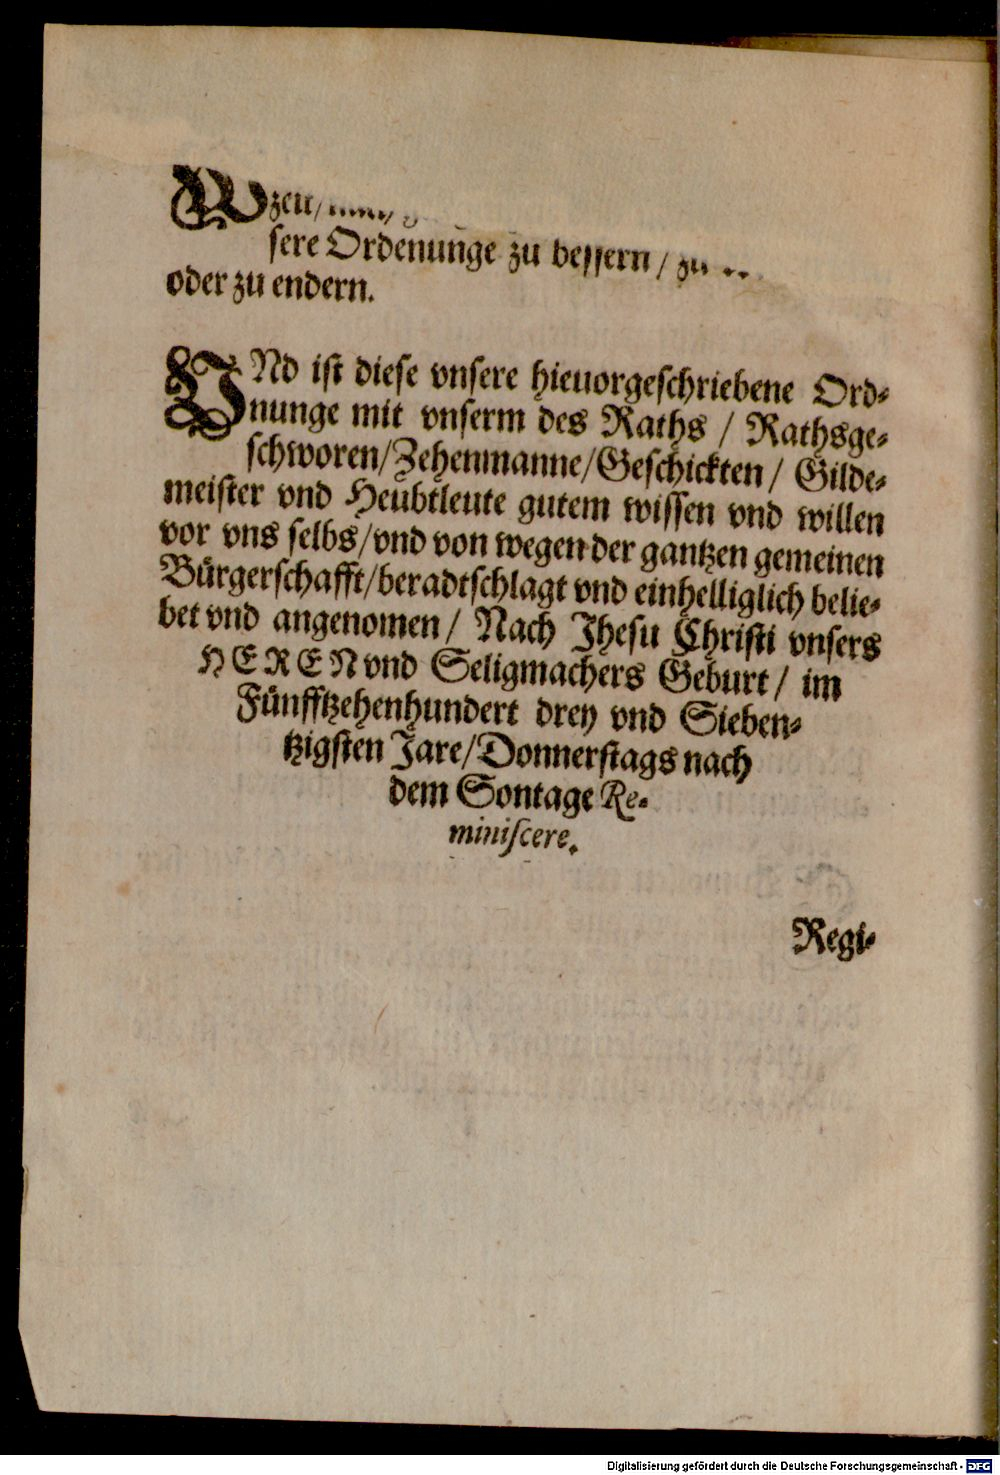 sere Ordenunge zu bessern / zu
oder zu endern.
VNd ist diese vnsere hieuorgeschriebene Ord-
nunge mit vnserm des Raths / Rathsge-
schworen/Zehenmanne/Geschickten / Gilde-
meister vnd Heubtleute gutem wissen vnd willen
vor vns selbs/vnd von wegen der gantzen gemeinen
Bürgerschafft/beradtschlagt vnd einhelliglich belie-
bet vnd angenomen / Nach Jhesu Christi vnsers
HEREN vnd Seligmachers Geburt / im
Fünfftzehenhundert drey vnd Sieben-
tzigsten Jare/Donnerstags nach
dem Sontage Re-
miniscere.
Regi-
Digitalisierung gefördert durch die Deutsche Forschungsgemeinschaft - DFG